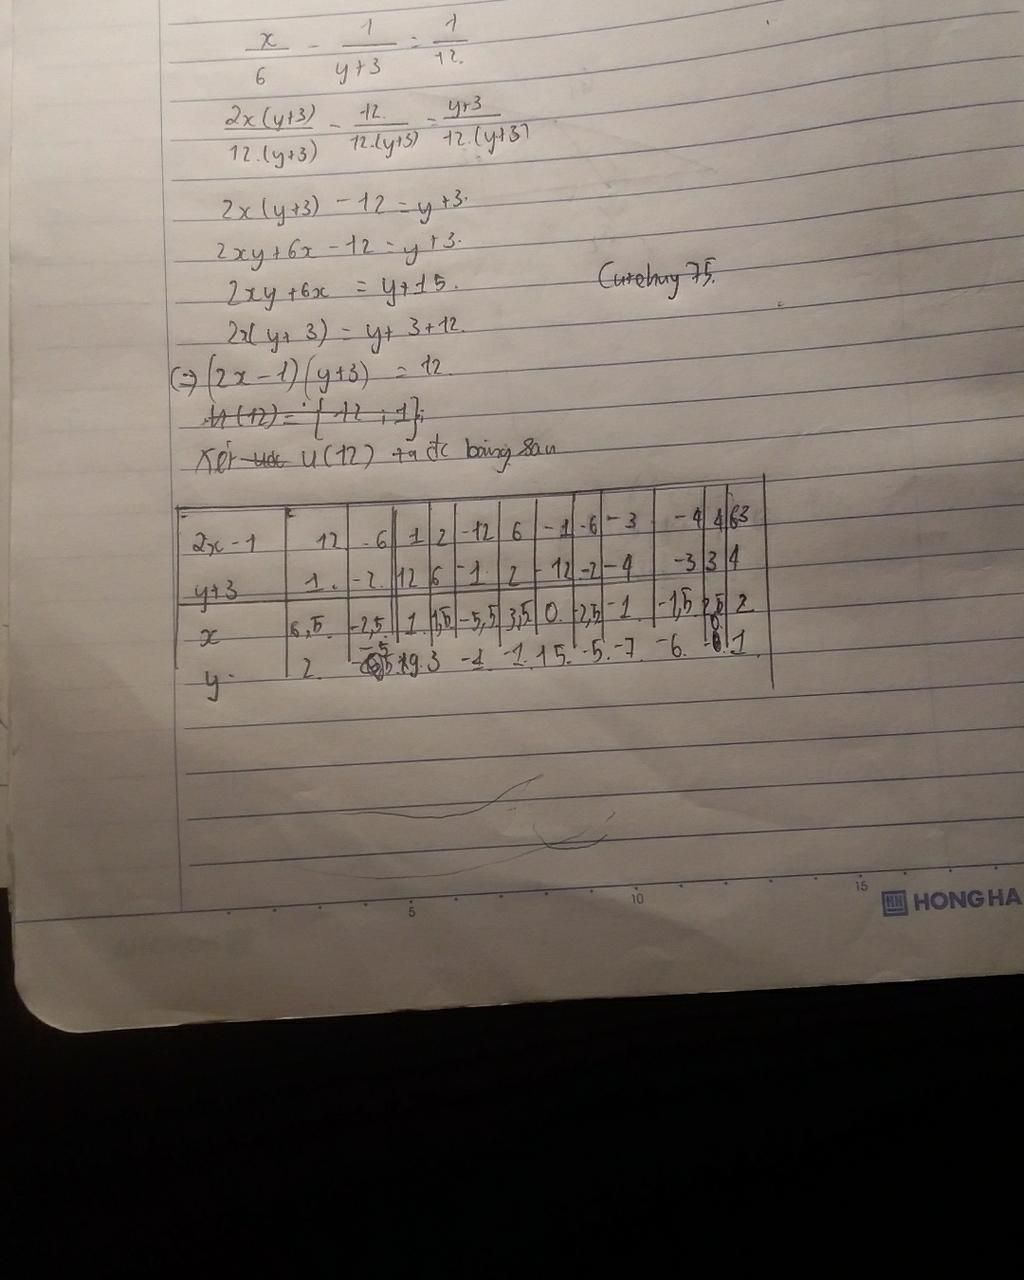 x/6 - 1/(y+3) = 1/12.
2x(y+3)/12.(y+3) - 12/12.(y+3) = y+3/12.(y+3)
2x(y+3) - 12 = y+3.
2xy+6x - 12 = y+3.
2xy +6x = y+15.
2x(y+3) = y+ 3+12.
(=) (2x-1)(y+3) = 12.
Ư(12) = {-12 ; 1};
Xét ước U(12) ta đc bảng sau
2x-1 12 -6 1 2 -12 6 -1 -6 -3 -4 4 3
y+3 1. -2. 12 6 -1. 2 -12 -2 -4 -3 3 4
x 6,5. -2,5. 1. 1,5 -5,5 3,5 0. -2,5 -1. -1,5 2,5 2
y. 2. -5 9. 3 -4 -1. 15. -5. -7. -6. 0. 1.
5 10 15
HONG HA